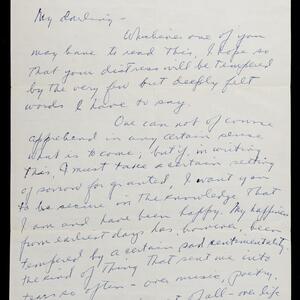 My darling –
Whichever one of you
may have to read this, I hope so
that your distress will be tempered
by the very few but deeply felt
words I have to say.
One can not of course
apprehend in any certain sense
what is to come, but if, in writing
this, I must take a certain setting
of sorrow for granted, I want you
to be secure in the knowledge that
I am and have been happy. My happiness
from earliest days has, however, been
tempered by a certain sad sentimentality,
the kind of thing that sent me into
tears so often – over music, poetry,
of all – over life